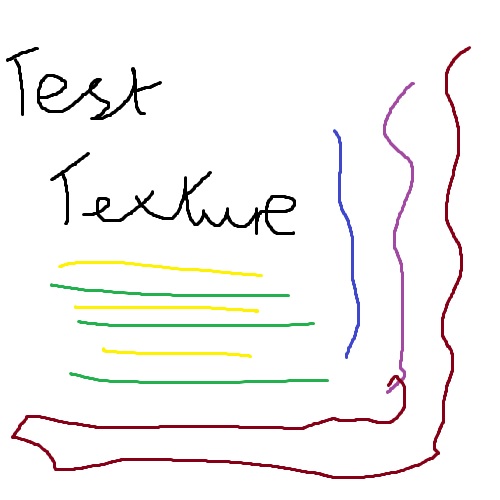 Test
Texture